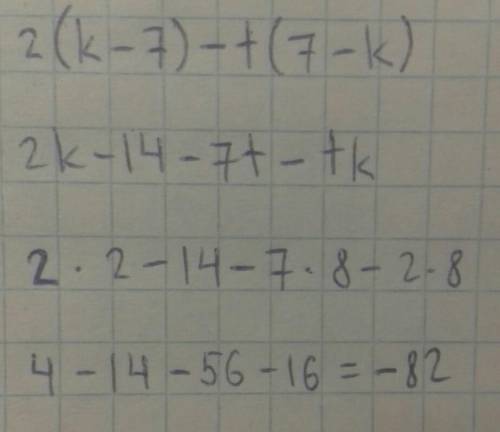 2(k-7)-t(7-k)
2k-14-7t-tk
2·2-14-7·8-2·8
4-14-56-16=-82